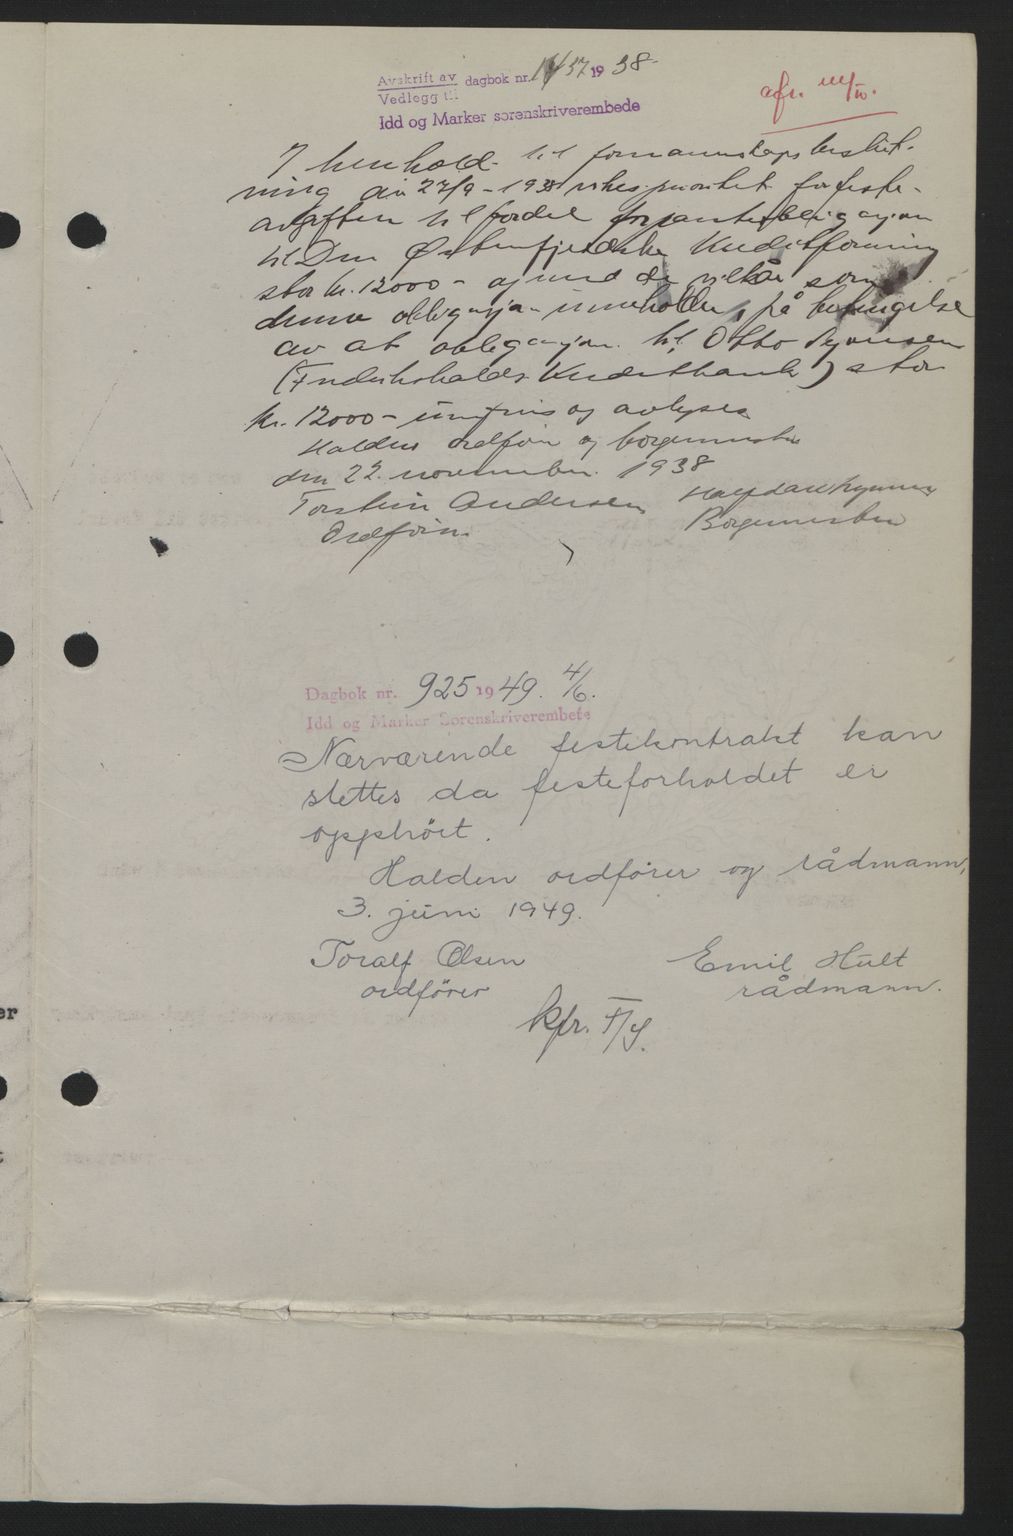 Avskrift av dagbok nr. 1437 1938
Vedlegg til
Idd og Marker sorenskriverembede
afr.
I henhold til formannskapsbeslut-
ning av 27/9 - 1938 vikes prioritet for feste-
avgiften til fordel for panteobligasjon
til Den Østenfjeldske Kreditforening
stor kr. 12000 - og med de vilkår som
denne obligasjon inneholder, på betingelse
av at obligasjon til Otto
( Kreditbank) stor
kr. 12000 - innfries og avlyses
Haldens ordfører og borgermester
den 22. november 1938
Torstein Andersen
Ordfører Borgermester
Dagbok nr. 925 1949. 4/6.
Idd og Marker Sorenskriverembete
Nærværende festekontrakt kan
slettes da festeforholdet er
opphört.
Halden ordfører og rådmann,
3. juni 1949.
Toralf Olsen Emil Hult
ordfører rådmann.
kfr.
er